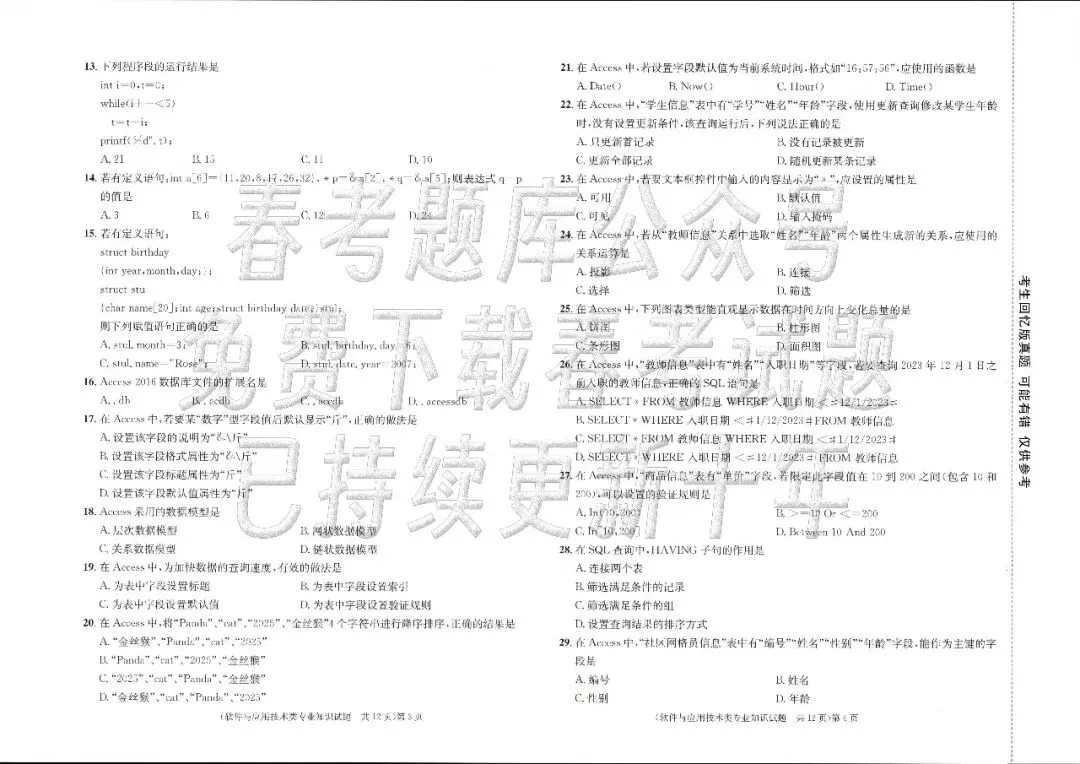 13. 下列程序段的运行结果是
int i=0,t=0;
while(i++<5)
t=t+i;
printf("%d",t);
A. 21 B. 15 C. 11 D. 10
14. 若有定义语句:int a[6]={11,20,8,17,26,32},*p=&a[2],*q=&a[5];则表达式 q-p
的值是
A. 3 B. 6 C. 12 D. 24
15. 若有定义语句:
struct birthday
{int year,month,day;};
struct stu
{char name[20];int age;struct birthday date;}stu1;
则下列赋值语句正确的是
A. stu1.month=3; B. stu1.birthday.day=6;
C. stu1.name="Rose"; D. stu1.date.year=2007;
16. Access 2016 数据库文件的扩展名是
A. .db B. .acdb C. .accdb D. .accessdb
17. 在 Access 中,若要某“数字”型字段值后默认显示“斤”,正确的做法是
A. 设置该字段的说明为“&\斤”
B. 设置该字段格式属性为“&\斤”
C. 设置该字段标题属性为“斤”
D. 设置该字段默认值属性为“斤”
18. Access 采用的数据模型是
A. 层次数据模型 B. 网状数据模型
C. 关系数据模型 D. 链状数据模型
19. 在 Access 中,为加快数据的查询速度,有效的做法是
A. 为表中字段设置标题 B. 为表中字段设置索引
C. 为表中字段设置默认值 D. 为表中字段设置验证规则
20. 在 Access 中,将“Panda”、“cat”、“2025”、“金丝猴”4 个字符串进行降序排序,正确的结果是
A. “金丝猴”、“Panda”、“cat”、“2025”
B. “Panda”、“cat”、“2025”、“金丝猴”
C. “2025”、“cat”、“Panda”、“金丝猴”
D. “金丝猴”、“cat”、“Panda”、“2025”
(软件与应用技术类专业知识试题 共 12 页)第 3 页
21. 在 Access 中,若设置字段默认值为当前系统时间,格式如“16:57:56”,应使用的函数是
A. Date() B. Now() C. Hour() D. Time()
22. 在 Access 中,“学生信息”表中有“学号”“姓名”“年龄”字段,使用更新查询修改某学生年龄
时,没有设置更新条件,该查询运行后,下列说法正确的是
A. 只更新首记录 B. 没有记录被更新
C. 更新全部记录 D. 随机更新某条记录
23. 在 Access 中,若要文本框控件中输入的内容显示为“*”,应设置的属性是
A. 可用 B. 默认值
C. 可见 D. 输入掩码
24. 在 Access 中,若从“教师信息”关系中选取“姓名”“年龄”两个属性生成新的关系,应使用的
关系运算是
A. 投影 B. 连接
C. 选择 D. 筛选
25. 在 Access 中,下列图表类型能直观显示数据在时间方向上变化总量的是
A. 饼图 B. 柱形图
C. 条形图 D. 面积图
26. 在 Access 中,“教师信息”表中有“姓名”“入职日期”等字段,若要查询 2023 年 12 月 1 日之
前入职的教师信息,正确的 SQL 语句是
A. SELECT * FROM 教师信息 WHERE 入职日期 <#12/1/2023#
B. SELECT * WHERE 入职日期 <#1/12/2023#FROM 教师信息
C. SELECT * FROM 教师信息 WHERE 入职日期 <#1/12/2023#
D. SELECT * WHERE 入职日期 <#12/1/2023#FROM 教师信息
27. 在 Access 中,“商品信息”表有“单价”字段,若限定此字段值在 10 到 200 之间(包含 10 和
200),可以设置的验证规则是
A. In(10,200) B. >=10 Or <=200
C. In[10,200] D. Between 10 And 200
28. 在 SQL 查询中,HAVING 子句的作用是
A. 连接两个表
B. 筛选满足条件的记录
C. 筛选满足条件的组
D. 设置查询结果的排序方式
29. 在 Access 中,“社区网格员信息”表中有“编号”“姓名”“性别”“年龄”字段,能作为主键的字
段是
A. 编号 B. 姓名
C. 性别 D. 年龄
(软件与应用技术类专业知识试题 共 12 页)第 4 页
考生回忆版真题 可能有错 仅供参考
春考题库公众号
免费下载春考试题
已持续更新十年